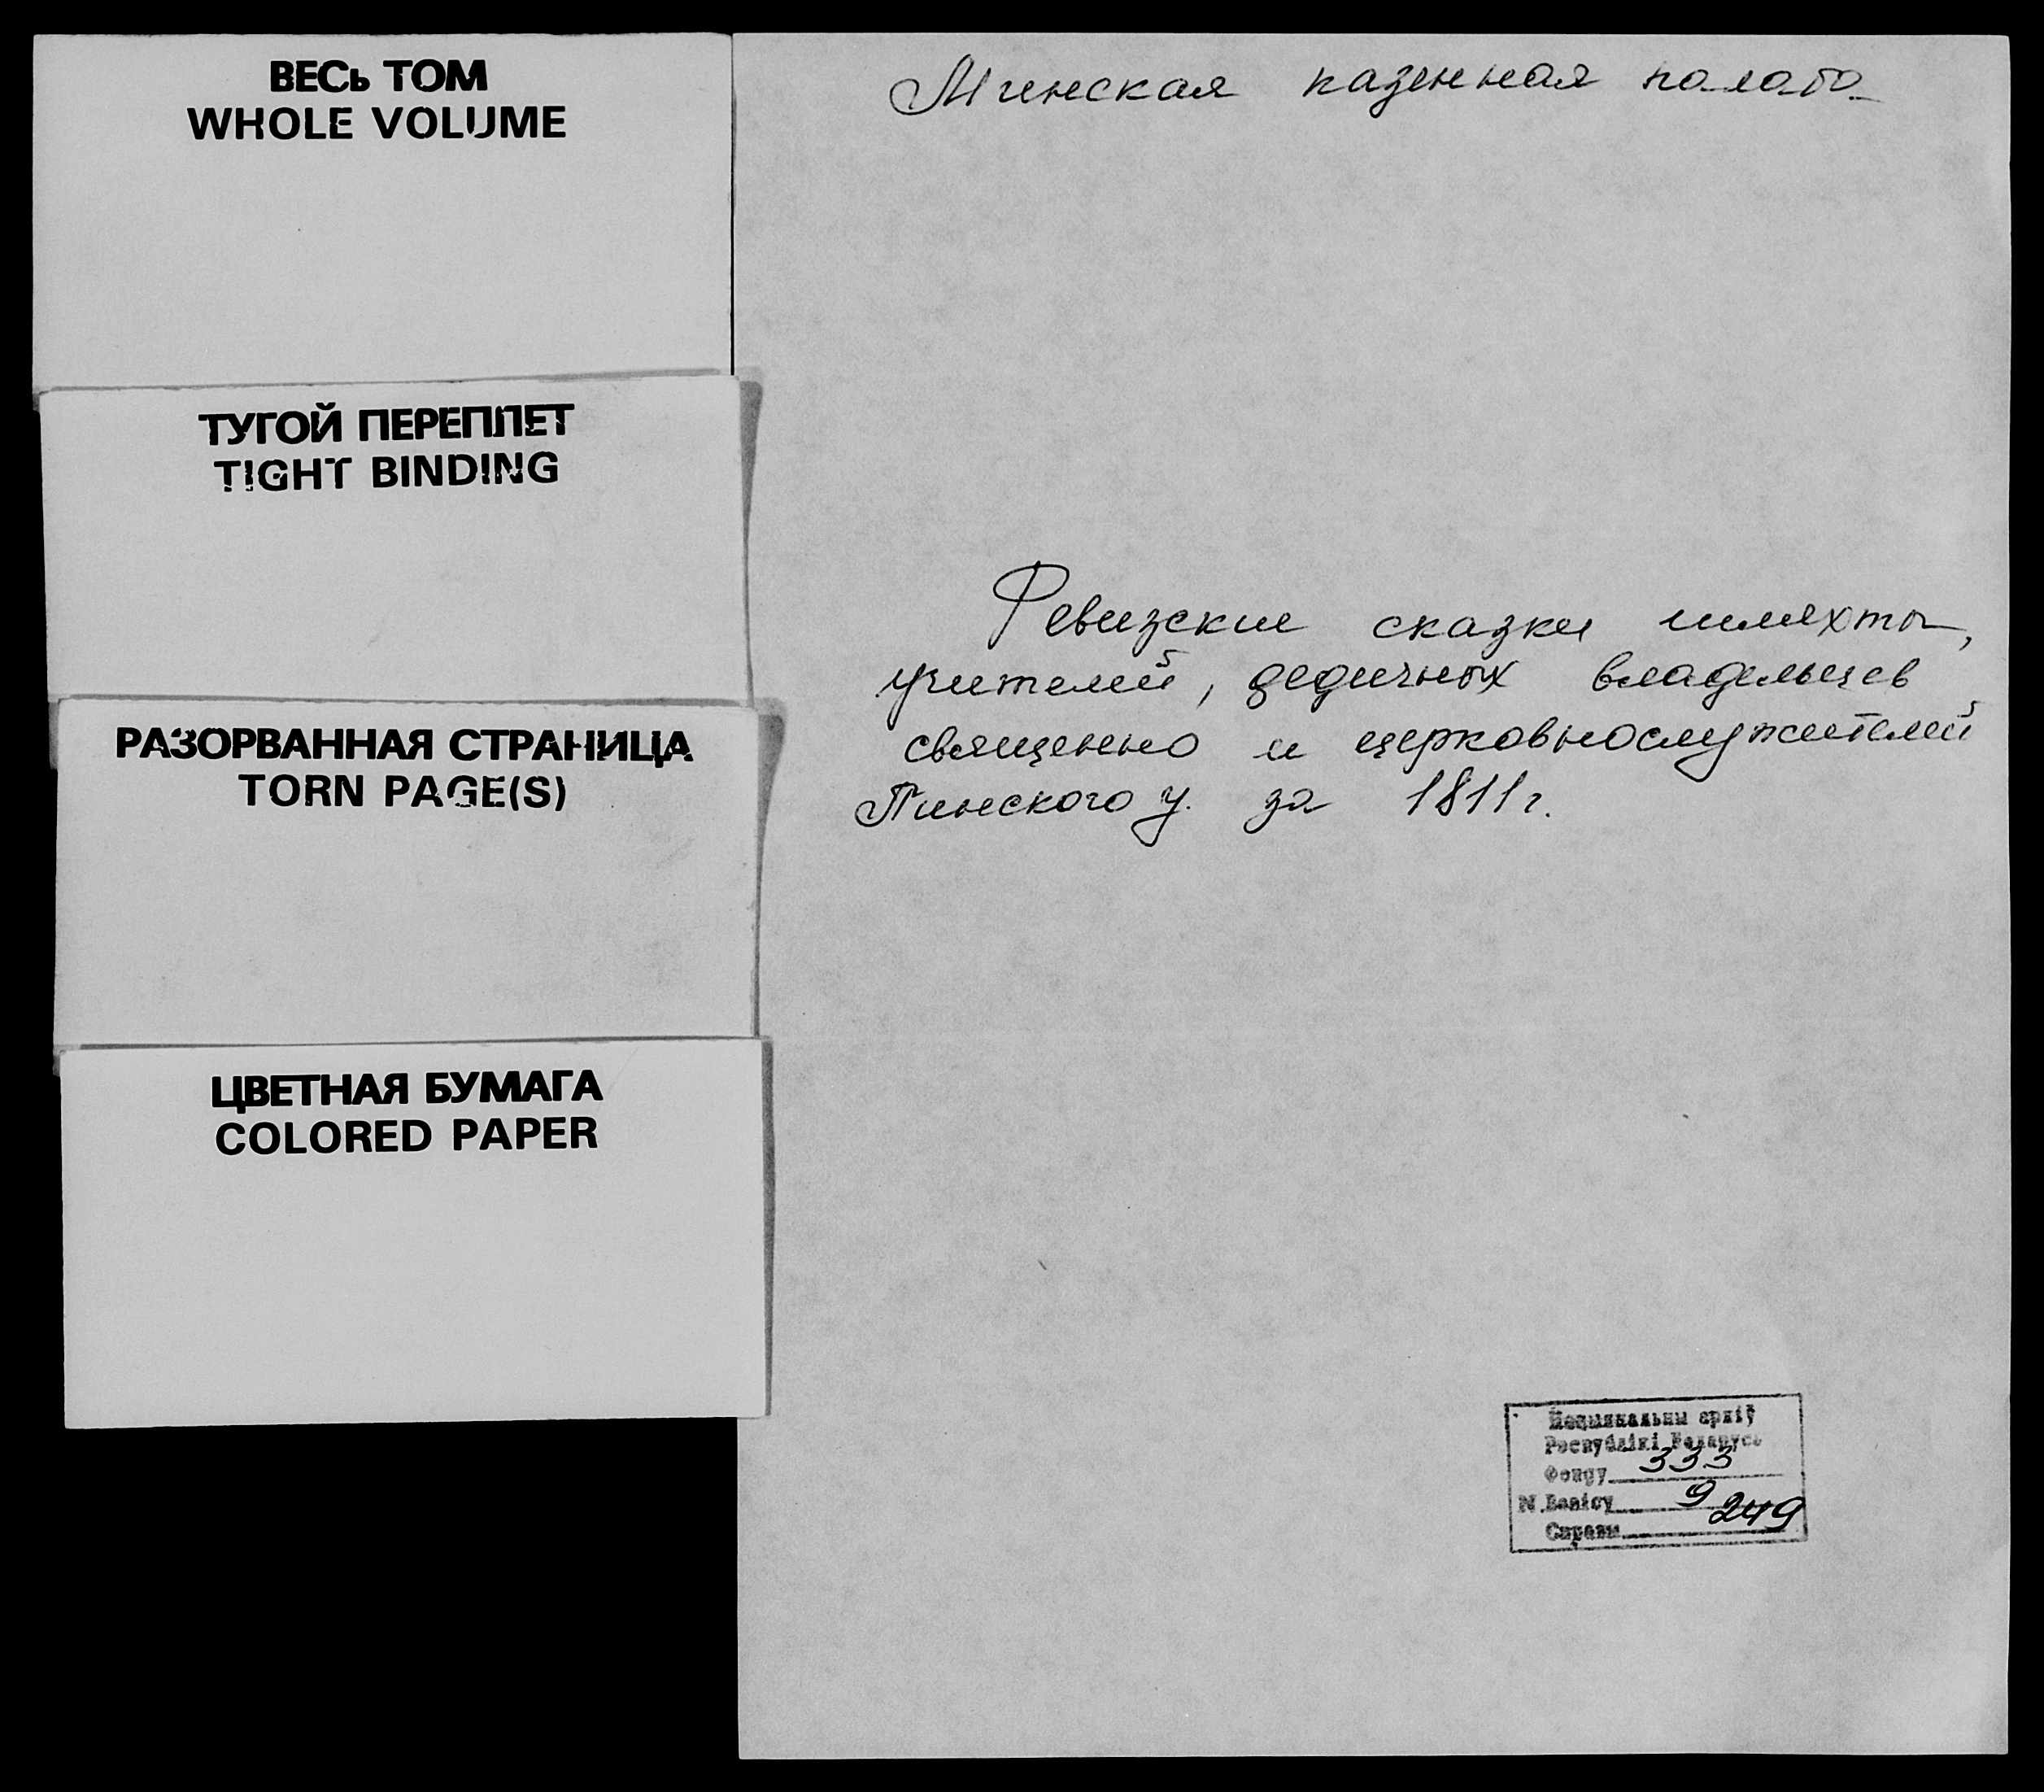 ВЕСЬ ТОМ
WHOLE VOLUME
ТУГОЙ ПЕРЕПЛЕТ
TIGHT BINDING
РАЗОРВАННАЯ СТРАНИЦА
TORN PAGE(S)
ЦВЕТНАЯ БУМАГА
COLORED PAPER
Минская казенная палата
Ревизские сказки шляхты,
учителей, дедичных владельцев
священно и церковнослужителей
Пинского у. за 1811 г.
Нацыянальны архіў
Рэспублікі Беларусь
Фонду 333
N Вопісу 9
Справы 249